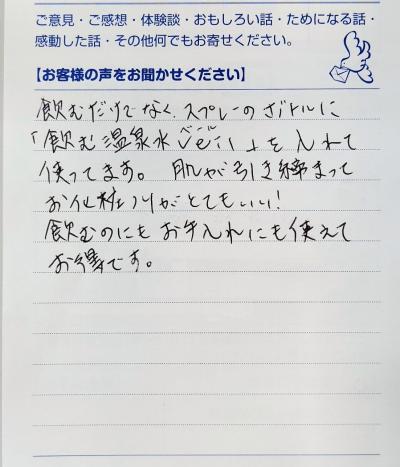 ご意見・ご感想・体験談・おもしろい話・ためになる話・
感動した話・その他何でもお寄せください。
【お客様の声をお聞かせください】
飲むだけでなく、スプレーのボトルに
ベール
「飲む温泉水Veil」を入れて
使ってます。肌が引き締まって
お化粧ノリがとてもいい!
飲むのにもお手入れにも使えて
お得です。